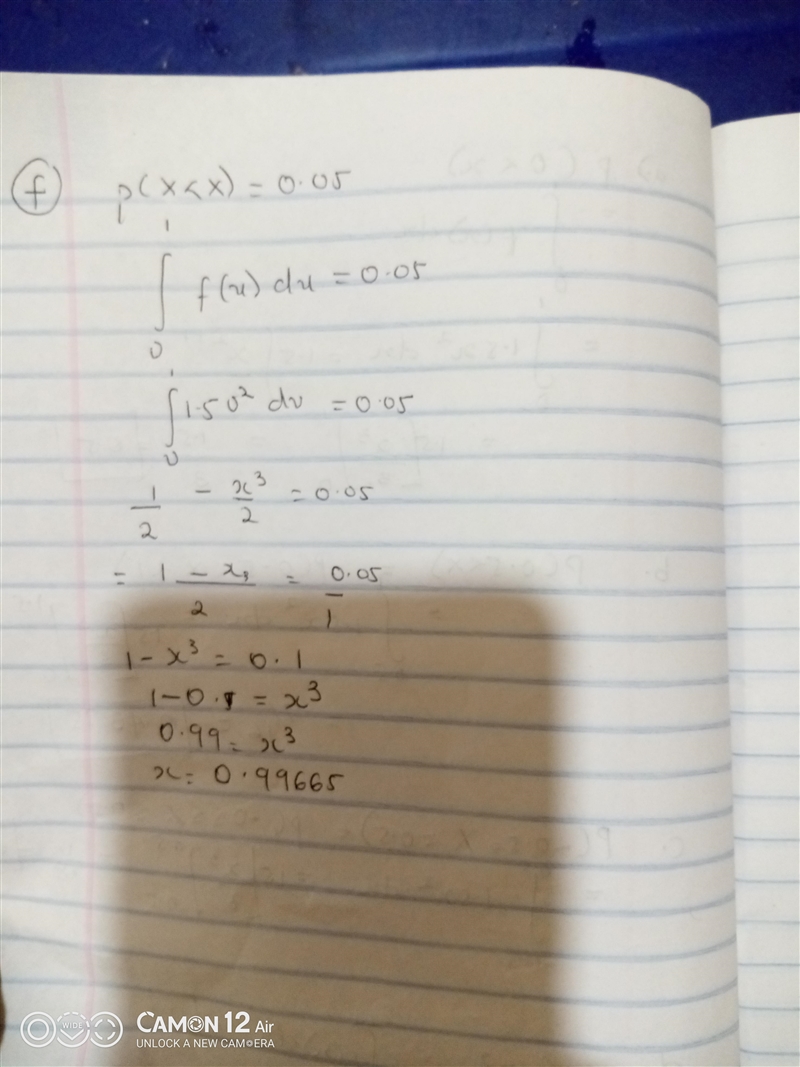 f P(X<X) = 0.05
1
∫ f(u) du = 0.05
0
1
∫ 1.5 U² du = 0.05
0
1/2 - x³/2 = 0.05
= 1 - x₃/2 = 0.05/1
1 - x³ = 0.1
1 - 0.1 = x³
0.99 = x³
x = 0.99665
WIDE
CAMON 12 Air
UNLOCK A NEW CAMERA